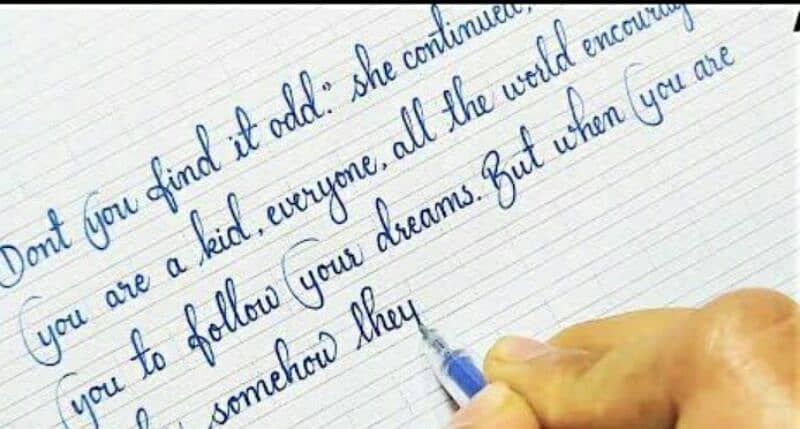 Dont you find it odd." she continued,
you are a kid, everyone, all the world encourag
you to follow your dreams. But when you are
somehow they